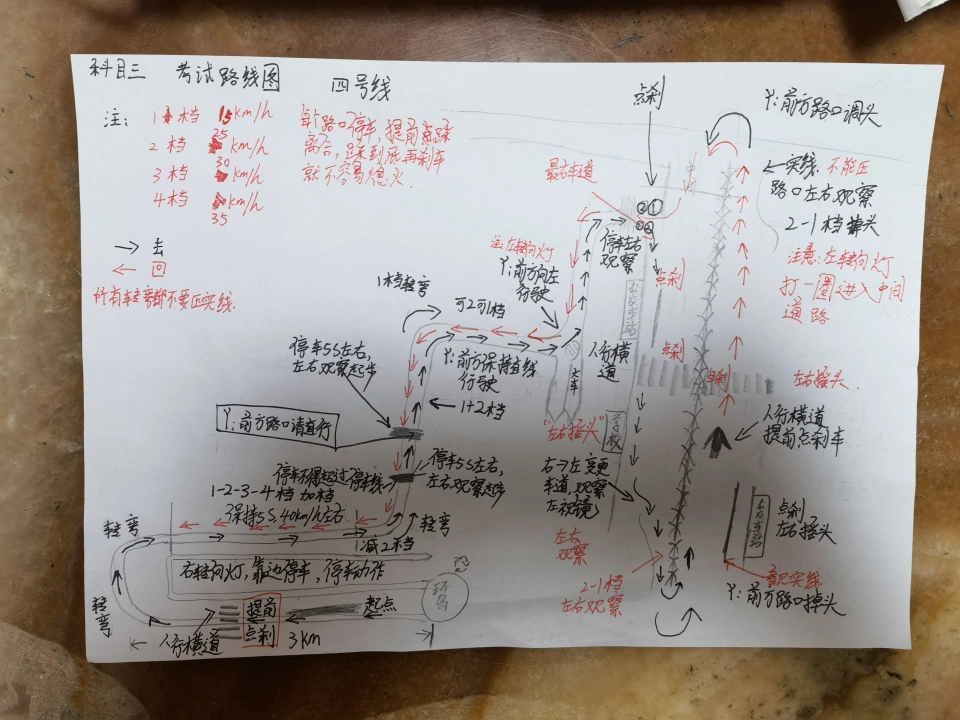 科目三 考试路线图 四号线
注: 1档 15km/h
2档 25km/h
3档 30km/h
4档 35km/h
每个路口停车,提前点踩
离合,踩到底再刹车
就不容易熄火.
→ 去
← 回
所有转弯都不要压实线.
点刹
Y:前方路口调头
←实线 不能压
路口左右观察
2-1档掉头
注意:左转向灯
打一圈进入中间
道路
最右车道
②①
停车左右
观察
点刹
公交车站
注:左转向灯
Y:前方向左
行驶
1档转弯
可2可1档
停车5S左右,
左右观察起步
Y:前方保持直线
行驶
1+2档
人行横
道
火车
点刹
点刹
左右摇头.
"左右摇头"
学校
人行横道
提前点刹车
Y:前方路口请直行
停车不得超过停车线
停车5S左右,
左右观察起步
右→左变更
车道,观察
左视镜
1-2-3-4档 加档
保持5S,40km/h左右
转弯
转弯
减2档
左右
观察
公交车站
点刹
左右摇头
看见实线
Y:前方路口掉头
2-1档
左右观察
右转向灯,靠边停车,停车动作
环岛
转弯
人行横道
提前
点刹
起点
3km